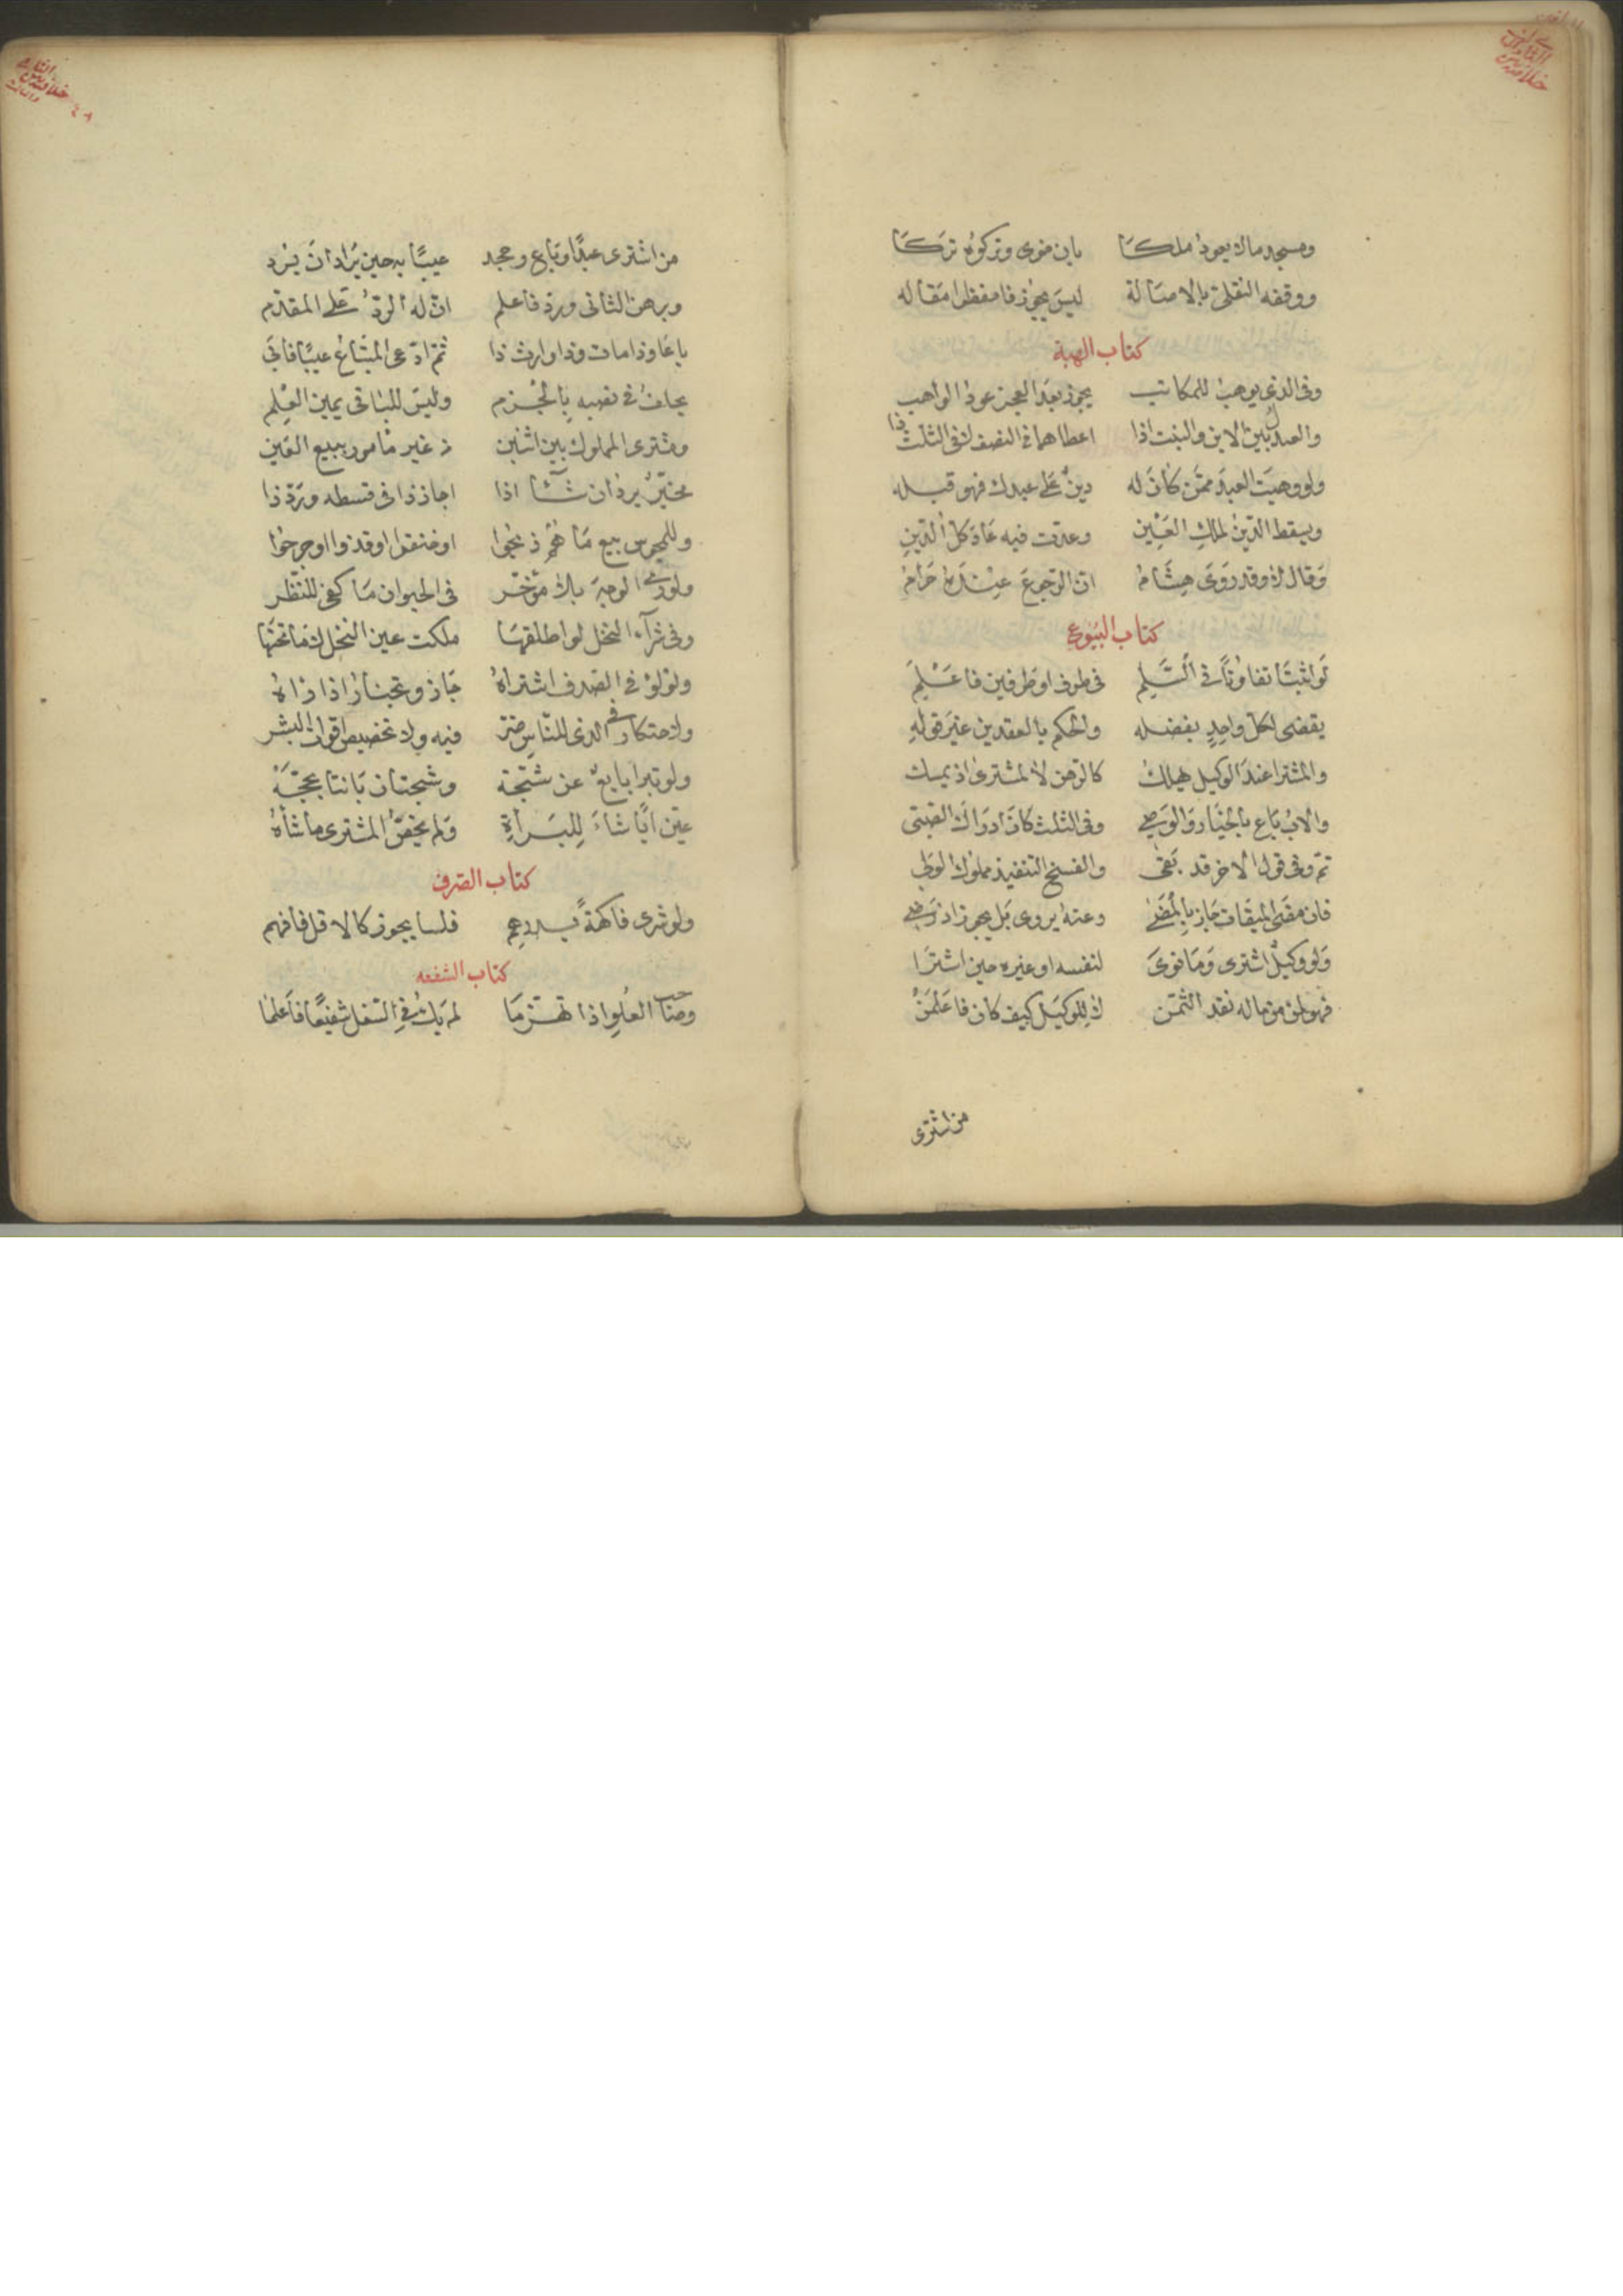 ومسجد مالا يعود ملكا بان خوى وتركوه تركا
ووقفه النقلى بالاصالة ليس يجوز فاحفظوا مقاله
كتاب الهبة
وفى الذى يوهب للمكاتب يجوز بعد العجز عود الواهب
والعبد بين الابن والبنت اذا اعطاهما فى النصف لا فى الثلث ذا
ولو وهبت العبد ممن كان له دين على عبدك فهو قبله
ويسقط الدين لملك العين وعدت فيه عاد كل الدين
وقال لا وقد روى هشام ان الرجوع عنده حرام
كتاب البيوع
لو اثبتا تفاوتا فى السلم فى طرف او طرفين فاعلم
يقضى لكل واحد بفضله والحكم بالعقدين غير قوله
والمشترا عند الوكيل هيلك كالرهن لا لمشترى اذ يمسك
والاب باع بالخيار والوصى وفى الثلث كان ادراك الصبى
تم وفى قول الاخر قد بقى والفسخ التنفيذ مملوك الولى
فان مضى الميقات جاز بالمضى وعنه يروى بل يجوز اذ رضى
ولو وكيل اشترى وما نوى لنفسه او غيره حين اشترا
فهو لمن من ماله نقد الثمن لا للوكيل كيف كان فاعلمن
من اشترى
من اشترى عبدا وباع وجحد عيبا به حين يراد ان يرد
وبرهن الثانى ورد فاعلم ان له الرد على المقدم
باعا وذا مات وذا وارث ذا ثم ادعى المبتاع عيبا فاتى
يحلف فى نصيبه بالجزم وليس للباقى يمين العلم
ومشترى المملوك بين اثنين من غير مامور ببيع العين
مخير يرد ان شآء اذا اجاز ذا فى قسطه ورد ذا
وللمجوس بيع ما هم ذبحوا او خنقوا او قذوا او جرحوا
ولو رمى الوجه بلا مؤخر فى الحيوان ما كفى للنظر
وفى شرآء النخل لو اطلقها ملكت عين النخل لا ما تحتها
ولؤلؤ فى الصدف اشتراه جاز ويختار اذا راه
ولاحتكار فى الذى للناس ضر فيه ولا تخصيص اقوات البشر
ولو تبرا بايع عن شجة وشجتان بانتا بحجة
عين ايا شاء للبرأة ولم يخص المشترى ما شاه
كتاب الصرف
ولو شرى فاكهة بدرهم فلسا يجوز كالاقل فافهم
كتاب الشفعه
وصاحب العلو اذا تهزما لم يك فى السفل شفيعا فاعلما